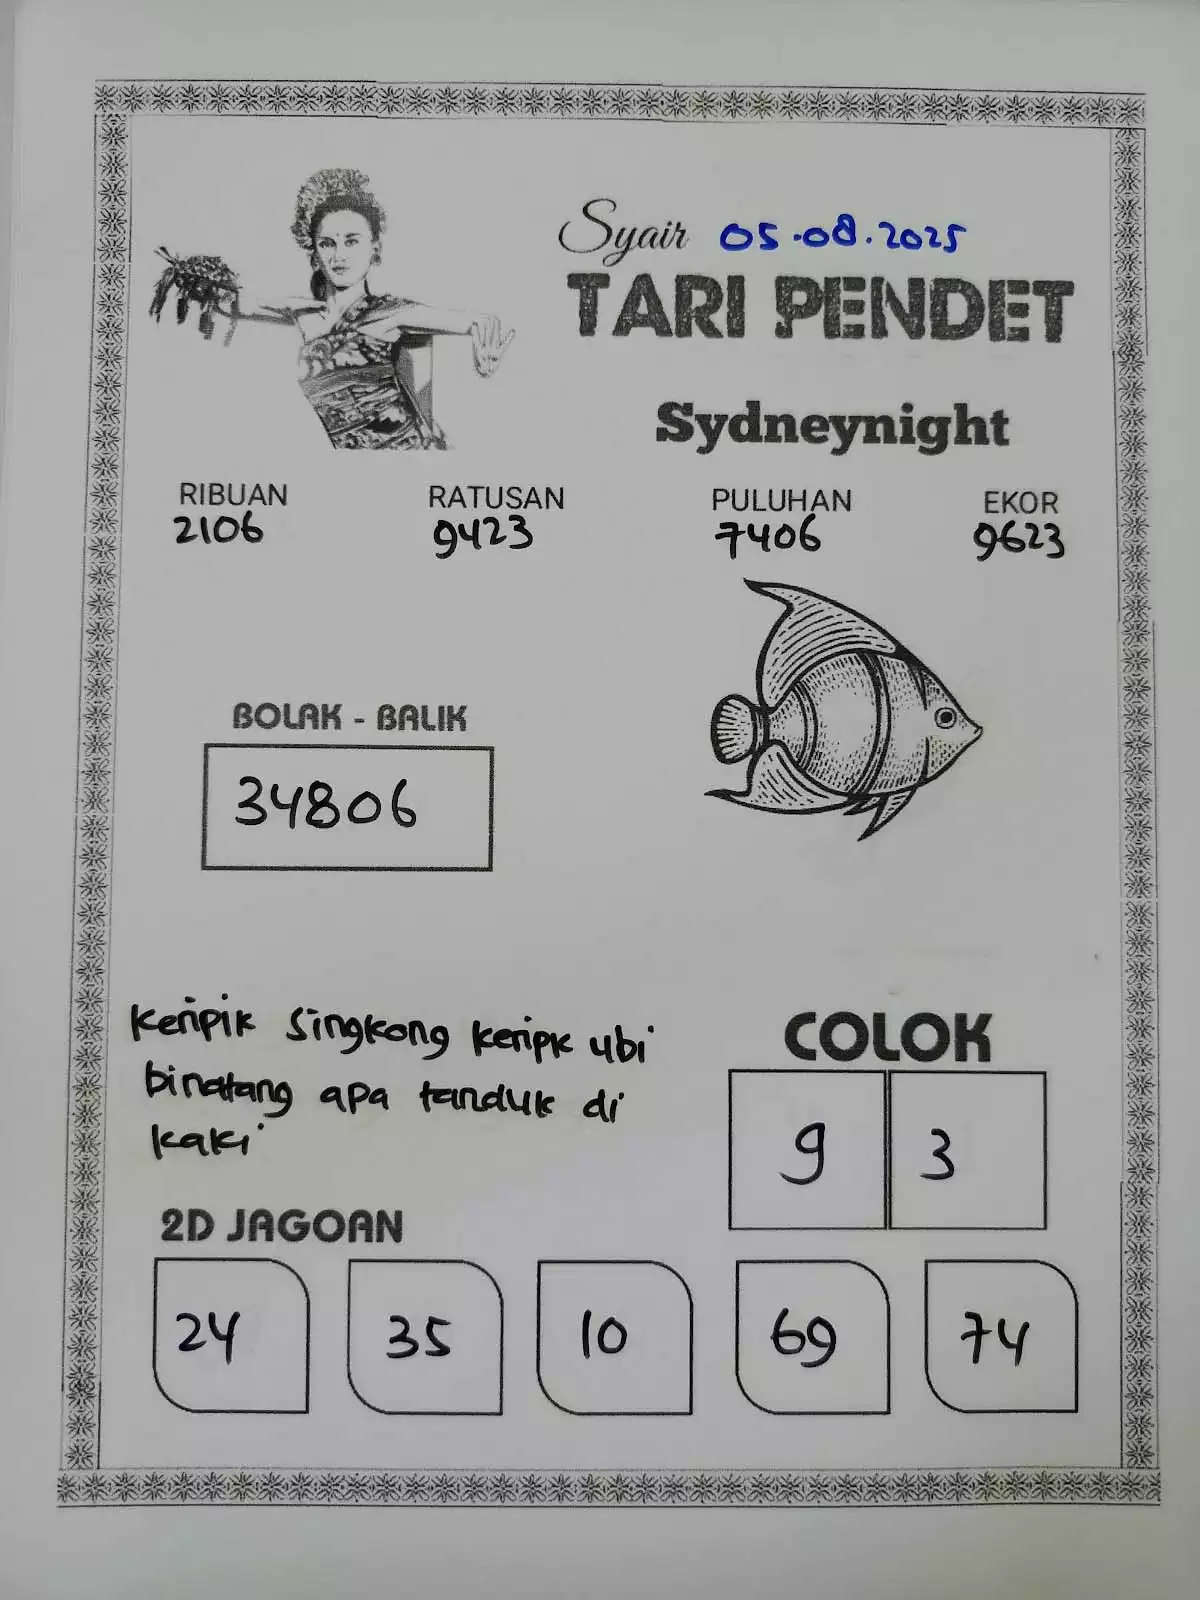 Syair 05.08.2025
TARI PENDET
Sydneynight
RIBUAN RATUSAN PULUHAN EKOR
2106 9423 7406 9623
BOLAK - BALIK
34806
keripik singkong keripk ubi
binatang apa tanduk di
kaki
COLOK
9 3
2D JAGOAN
24 35 10 69 74